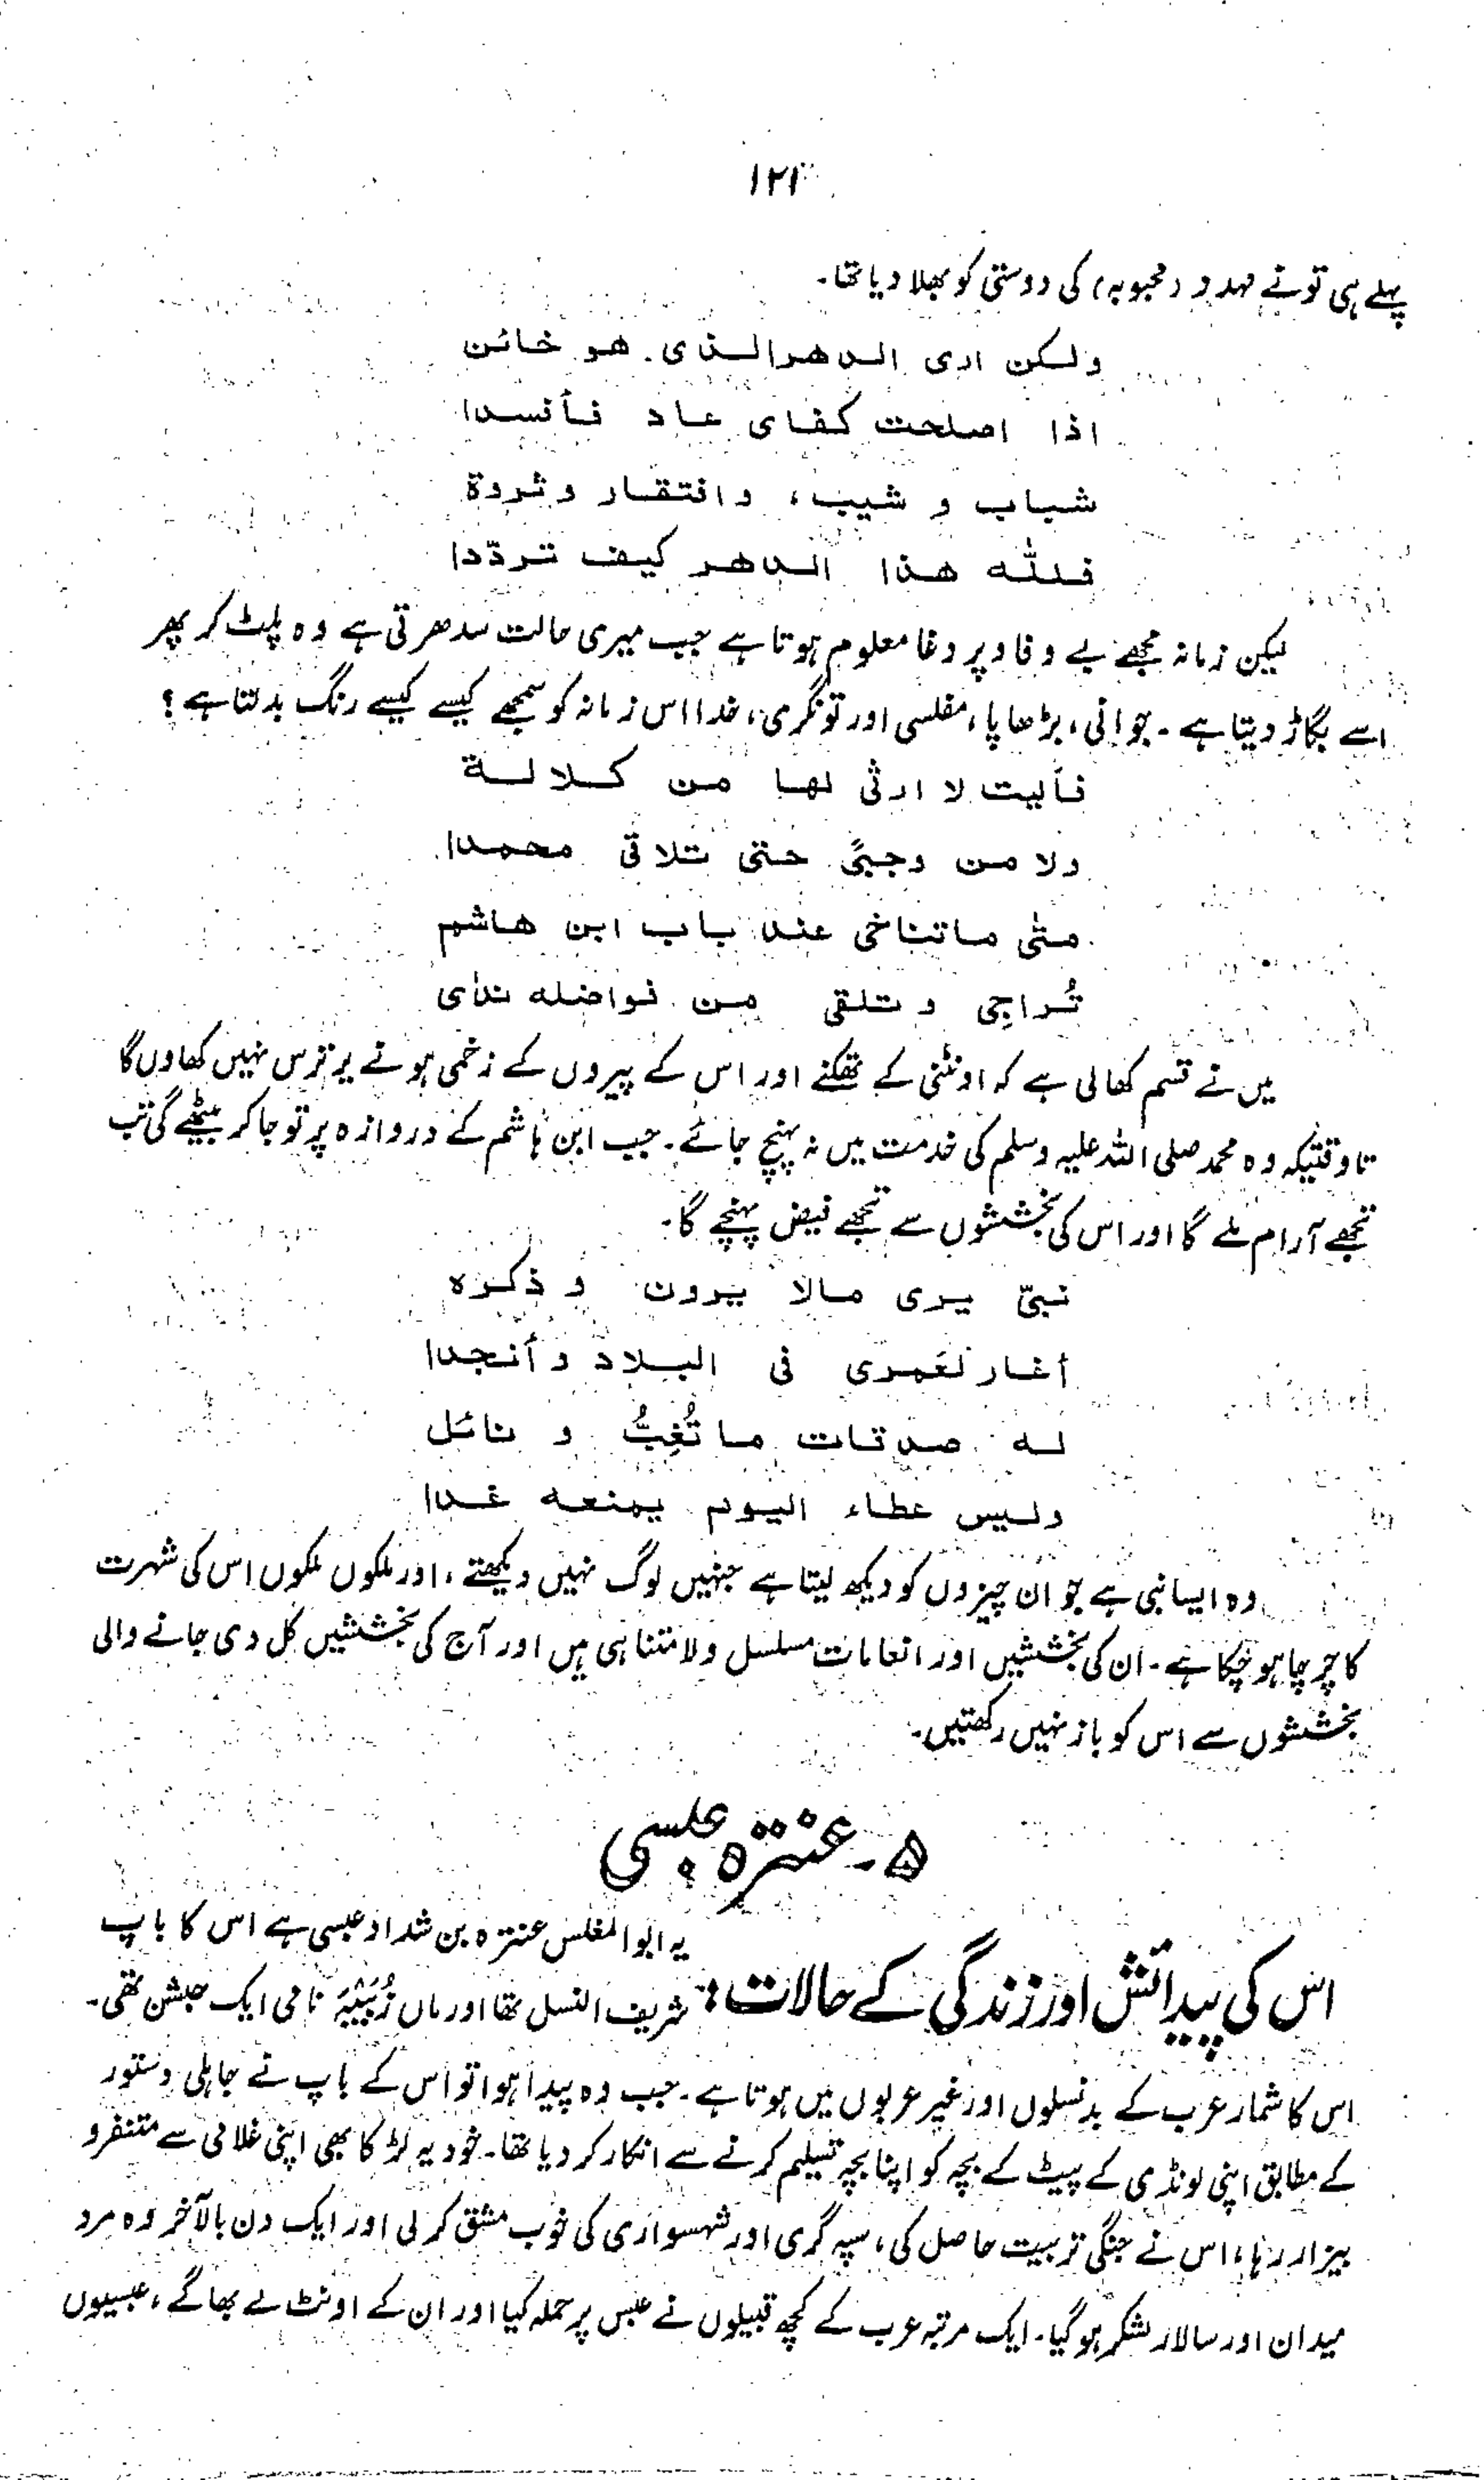 ۱۲۱
پہلے ہی تونے مہدد (محبوبہ) کی دوستی کو بھلا دیا تھا۔
ولکن اری الدھر الذی ھو خائن
اذا اصلحت کفای عاد فأفسدا
شباب و شیب، وافتقار وثروۃ
فللّٰہ ھذا الدھر کیف تردّدا
لیکن زمانہ مجھے بے وفا و پر دغا معلوم ہوتا ہے جب میری حالت سدھرتی ہے وہ پلٹ کر پھر
اسے بگاڑ دیتا ہے۔ جوانی، بڑھاپا، مفلسی اور تونگری، خدا اس زمانہ کو سمجھے کیسے کیسے رنگ بدلتا ہے؟
فآلیت لا ارثی لھا من کلالۃ
ولا من وجیً حتی تلاقی محمدا
متی ما تناخی عند باب ابن ھاشم
تُراحِی و تلقی من فواضلہ ندی
میں نے قسم کھالی ہے کہ اونٹنی کے تھکنے اور اس کے پیروں کے زخمی ہونے پر ترس نہیں کھاوں گا
تا وقتیکہ وہ محمد صلی اللہ علیہ وسلم کی خدمت میں نہ پہنچ جائے۔ جب ابن ہاشم کے دروازہ پر تو جاکر بیٹھے گی تب
تجھے آرام ملے گا اور اس کی بخششوں سے تجھے فیض پہنچے گا۔
نبیّ یری مالا یرون و ذکرہ
أغار لعَمری فی البلاد وأنجدا
لہ صدقات ما تُغِبُّ و نائل
ولیس عطاء الیوم یمنعہ غدا
وہ ایسا نبی ہے جو ان چیزوں کو دیکھ لیتا ہے جنہیں لوگ نہیں دیکھتے، اور ملکوں ملکوں اس کی شہرت
کا چرچا ہوچکا ہے۔ ان کی بخششیں اور انعامات مسلسل ولا متناہی ہیں اور آج کی بخششیں کل دی جانے والی
بخششوں سے اس کو باز نہیں رکھتیں۔
۵۔ عنترہ عبسی
اس کی پیدائش اور زندگی کے حالات:
یہ ابوالمغلس عنترہ بن شداد عبسی ہے اس کا باپ
شریف النسل تھا اور ماں زُبَیْبَہ نامی ایک حبشن تھی۔
اس کا شمار عرب کے بدنسلوں اور غیر عربوں میں ہوتا ہے۔ جب وہ پیدا ہوا تو اس کے باپ نے جاہلی دستور
کے مطابق اپنی لونڈی کے پیٹ کے بچہ کو اپنا بچہ تسلیم کرنے سے انکار کر دیا تھا۔ خود یہ لڑکا بھی اپنی غلامی سے متنفر و
بیزار رہا، اس نے جنگی تربیت حاصل کی، سپہ گری اور شہسواری کی خوب مشق کرلی اور ایک دن بالآخر وہ مرد
میدان اور سالار لشکر ہوگیا۔ ایک مرتبہ عرب کے کچھ قبیلوں نے عبس پر حملہ کیا اور ان کے اونٹ لے بھاگے، عبسیوں